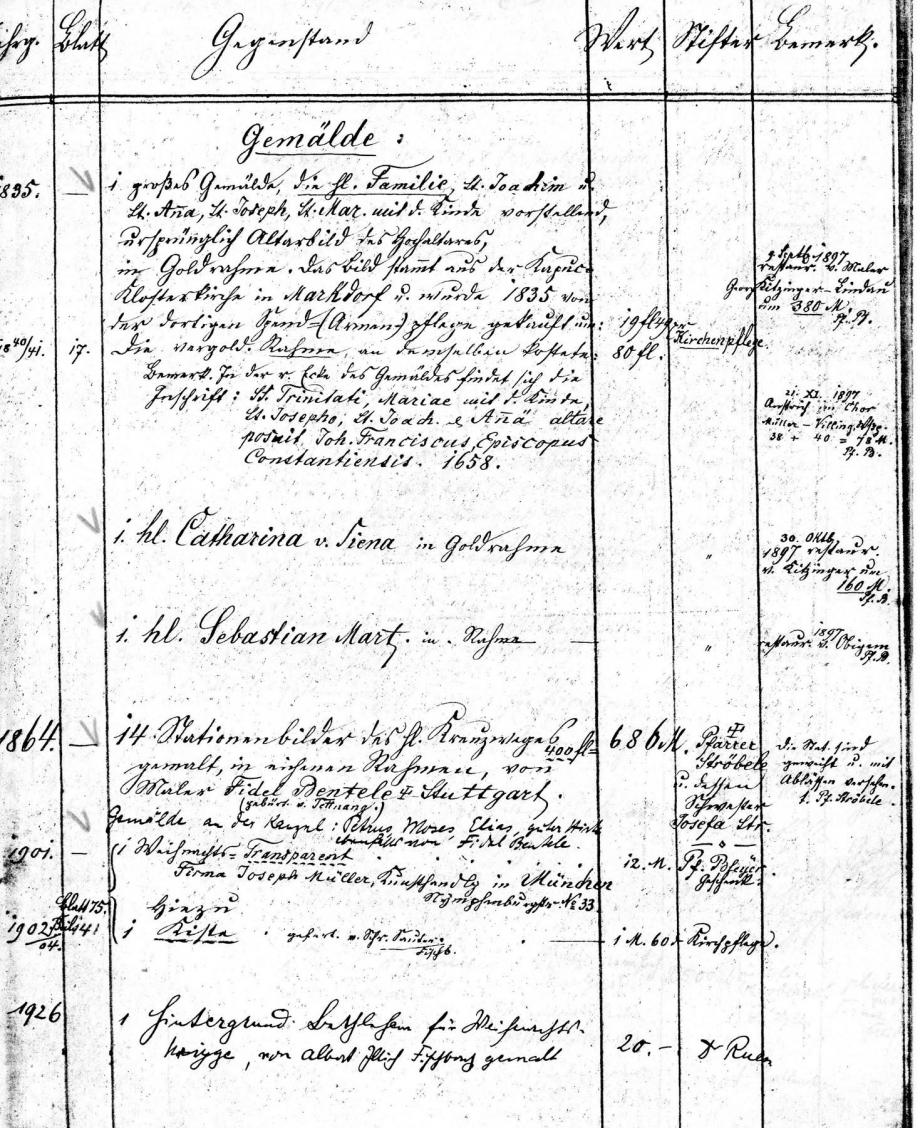 Jhrg. Blatt Gegenstand Wert Stifter Bemerk.
Gemälde:
1835. — 1 großes Gemälde, die hl. Familie, St. Joachim u.
St. Aña, St. Joseph, St. Mar. mit d. Kinde vorstellend,
ursprünglich Altarbild des Hochaltares,
im Goldrahme. Das Bild stam̄t aus der Kapuc.
Klosterkirche in Markdorf u. wurde 1835 von
der dortigen Spend-(Armen-)pflege gekauft um: 19 fl 42 Kirchenpflege
9 Septb 1897
restaur. v. Maler
Georg Kitzinger-Lindau
um 380 M.
Pf. B.
1840/41. 17. Die vergold. Rahme, an demselben kostete: 80 fl.
Bemerk. In der r. Ecke des Gemäldes findet sich die
Inschrift: SS. Trinitati, Mariae mit d. Kinde,
St. Josepho, St. Joach. & Añä altare
posuit Joh. Franciscus Episcopus
Constantiensis. 1658.
21. XI. 1897
Anstrich im Chor
Müller - Villing.
38 + 40 = 78 M.
Pf. B.
1. hl. Catharina v. Siena in Goldrahme "
30. Oktb.
1897 restaur.
v. Kitzinger um
160 M.
Pf. B.
1. hl. Sebastian Mart. in. Rahme — "
1897
restaur. v. Obigem
Pf. B.
1864. — 14 Stationenbilder des hl. Kreuzweges 400 fl= 686 M. Pfarrer
gemalt, in eichenen Rahmen, von Ströbele
Maler Fidel Bentele ‡ Stuttgart. u. dessen
(gebürt. v. Tettnang.) Schwester
Josefa Str.
die Stat. sind
geweiht u. mit
Ablässen versehen.
t. Pf. Ströbele.
Gemälde an der Kanzel: Petrus, Moses, Elias, guter Hirte
ebenfalls von Fidel Bentele.
1901. — 1 Weihnachts-Transparent 12. M. Pf.
Firma Joseph Müller, Kunsthandlg in München Geschenk.
Nymphenburgstr No 33.
Blatt 75.
Hiezu
1902/04. 1 Kiste gefert. v. Schr. Sauter. — 1 M. 60 Kirchpflege.
Fischb.
1926 1 Hintergrund Bethlehem für Weihnachts-
krippe, von Albert Illich Fischbach gemalt 20.—